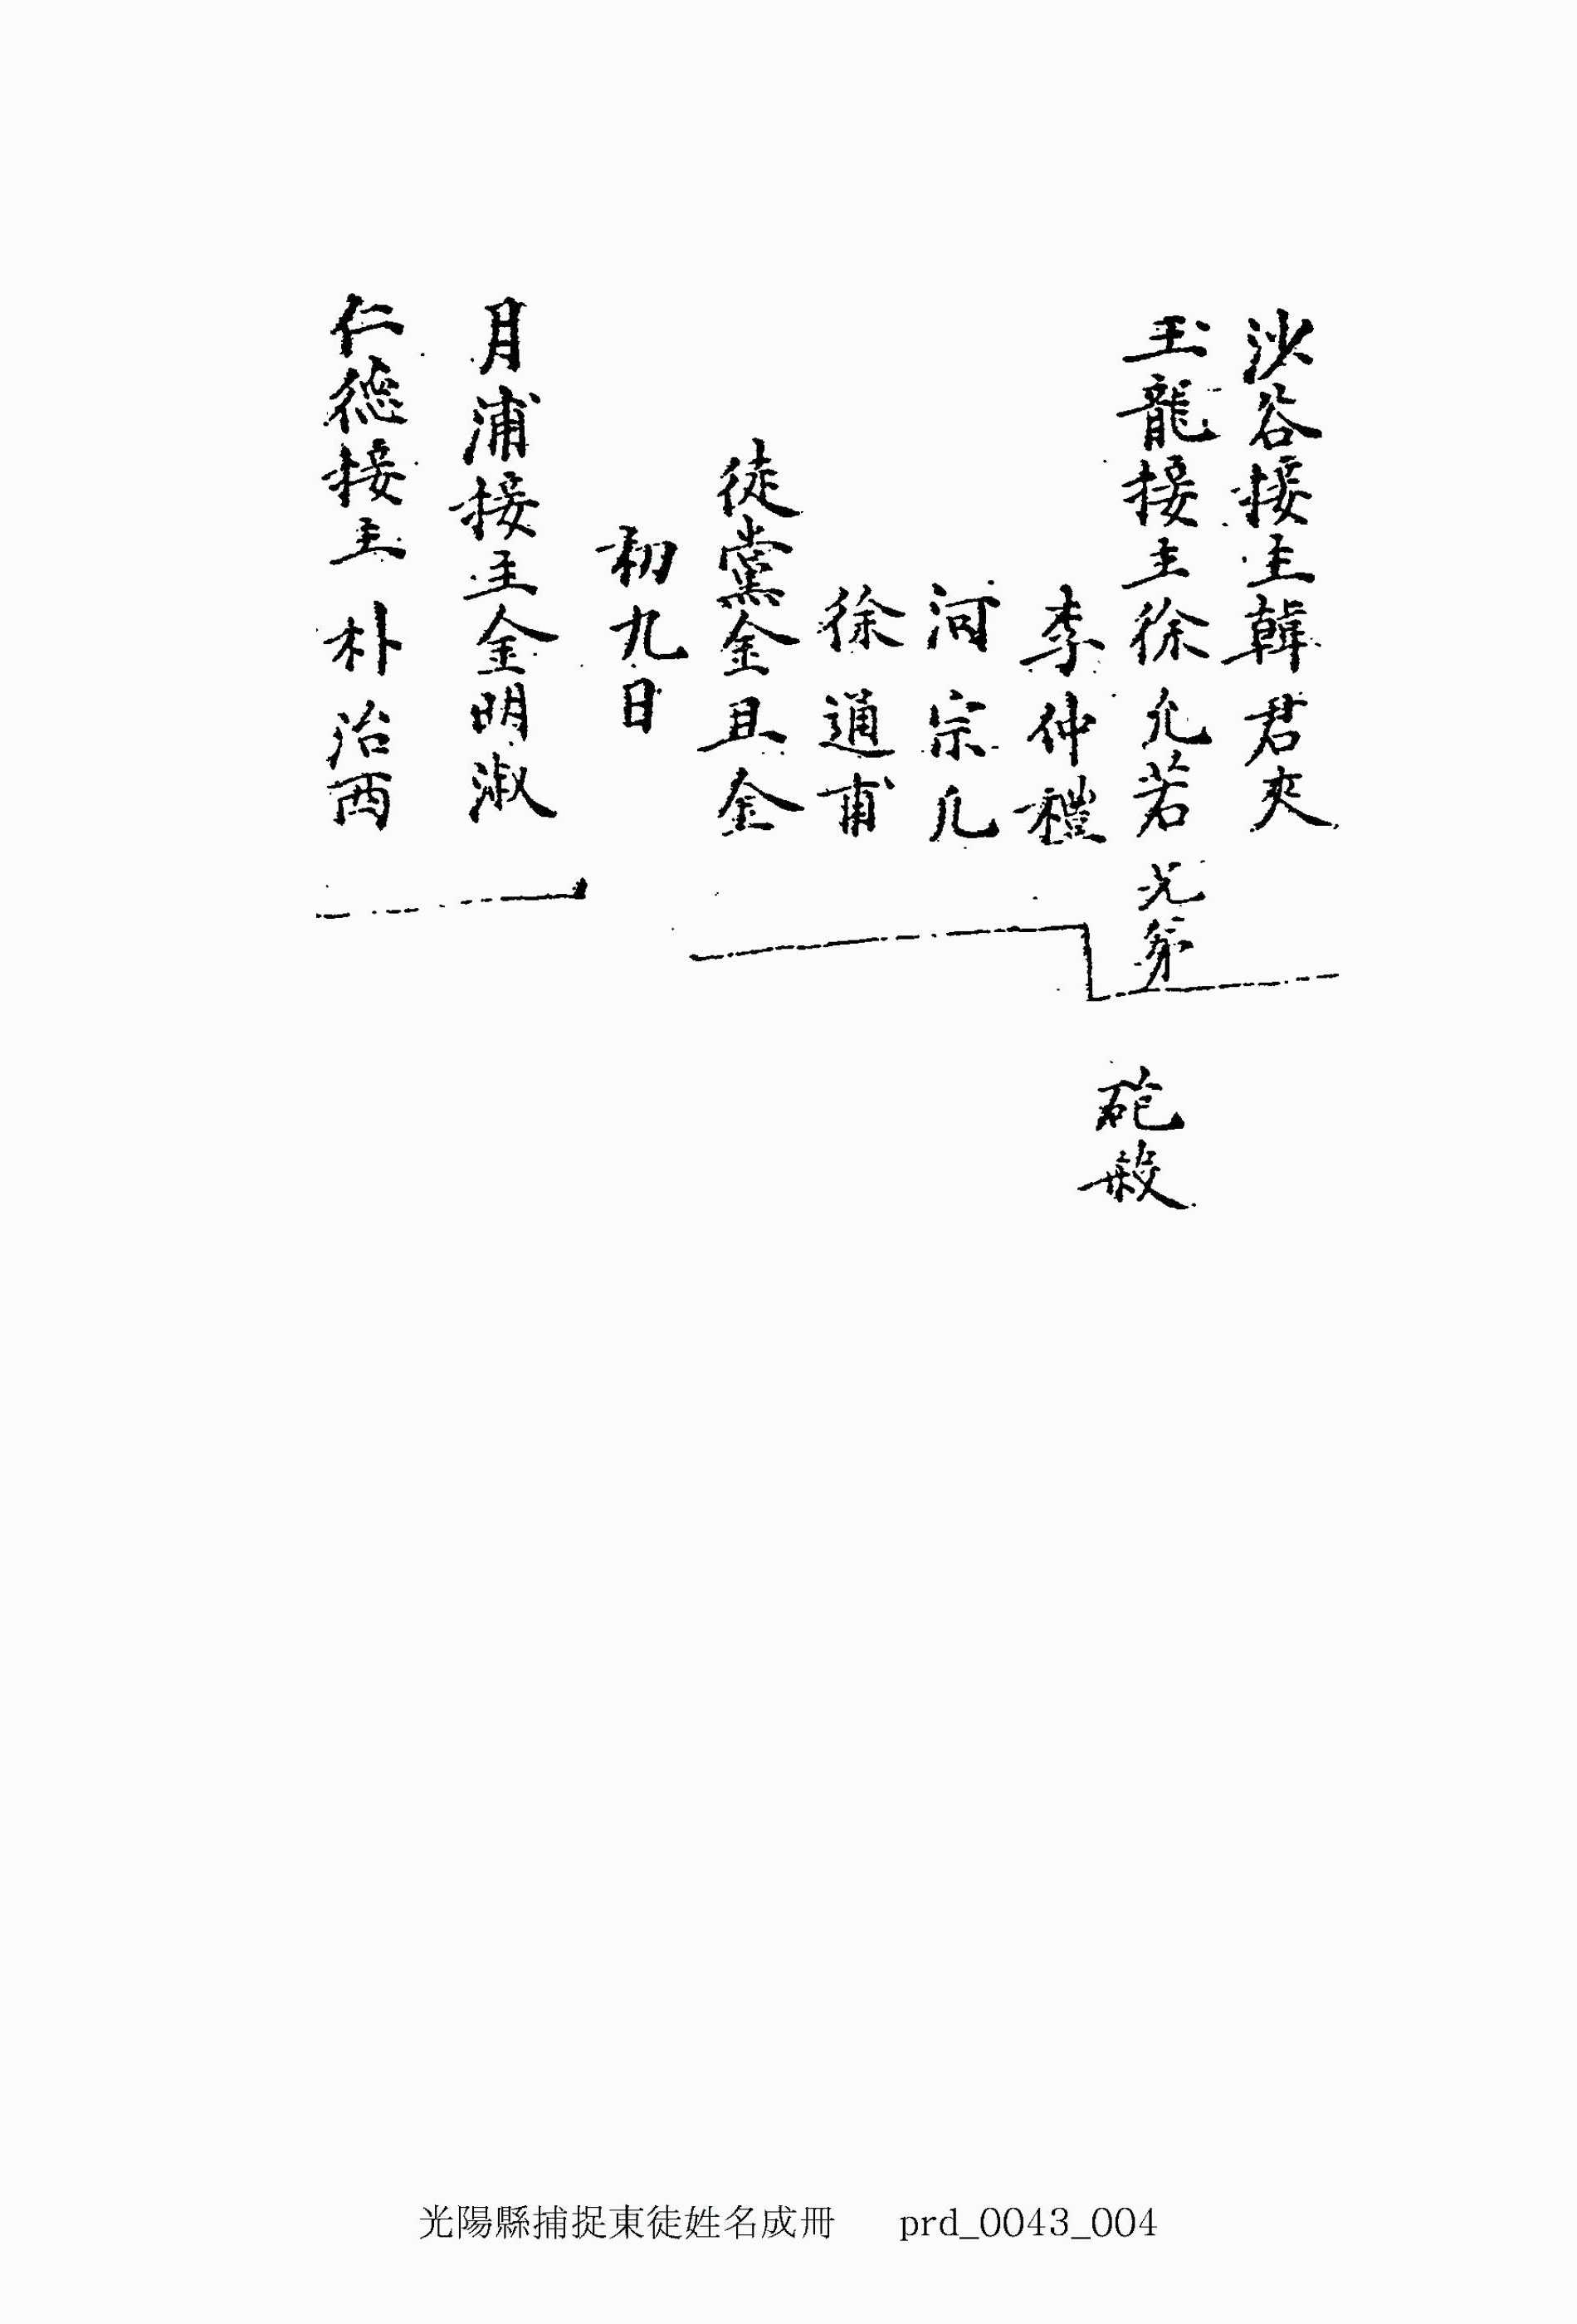 沙谷接主韓君夾
玉龍接主徐允若兄弟
砲殺
李仲
河宗凡
徐通甫
徒黨金且金
初九日
月浦接主金明淑
仁德接主朴治西
光陽縣捕捉東徒姓名成冊 prd_0043_004